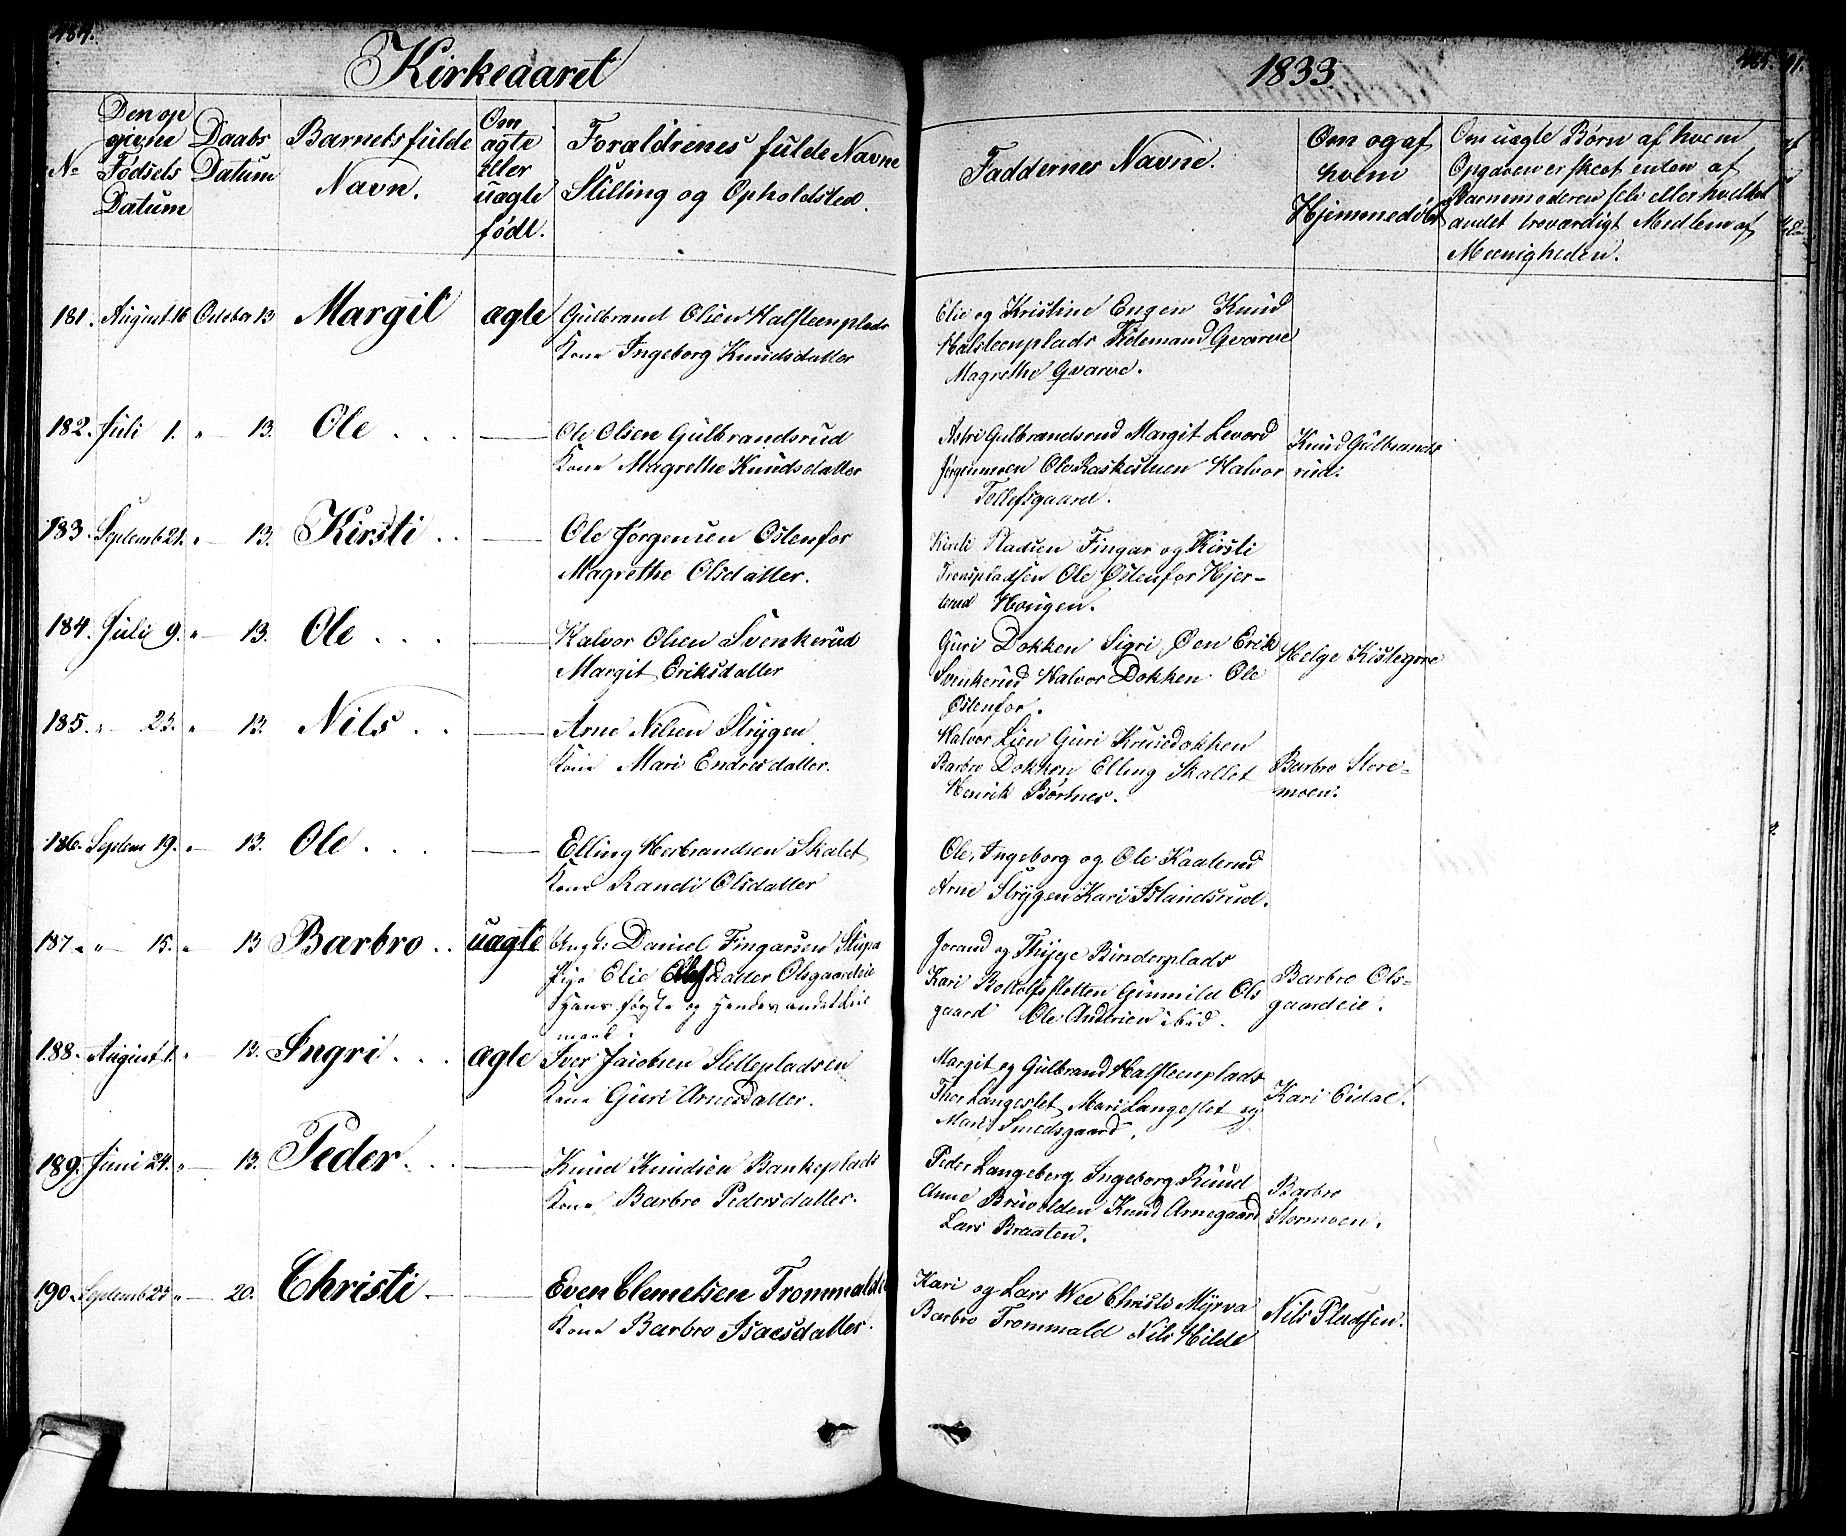 484.
Kirkeaaret
1833.
485.
91.
No
Den op
givne
Fødsels
Datum
Daabs
Datum
Barnets fulde
Navn.
Om
ægte
eller
uægte
født.
Forældrenes fulde Navne
Stilling og Opholdsted.
Faddernes Navne.
Om og af
hvem
Hjemmedöbt
Om uægte Børn af hvem
Opgaven er skeet enten af
Barnemoderen selv eller hvilket
andet troværdigt Medlem af
Menigheden.
181. August 16 October 13 Margit ægte Gulbrand Olsen Halsteenplads
Kone Ingeborg Knudsdatter
Elie og Kristine Engen Knud
Halsteenplads Kittemand Qvarve
Magrethe Qvarve.
182. Juli 1. " 13. Ole Ole Olsen Gulbrandsrud
Kone Magrethe Knudsdatter
Astri Gulbrandsrud Margit Levord
Jørgenmoen Ole Raskestuen Halvor
Tollefsgaard.
Knud Gulbrands
rud.
183. Septemb 21. " 13. Kirsti Ole Jørgensen Østenfor
Magrethe Olsdatter.
Pladsen Fingar og Kirsti
Trøenspladsen Ole Østenfor Hjer-
terud Hougen.
184. Juli 9. " 13. Ole Halvor Olsen Svenkerud
Margit Eriksdatter
Guri Dokken Sigri Øen Erik
Svenkerud Halvor Dokken Ole
Østenfor.
Helge Kistegore
185. " 23. " 13. Nils Arne Nilsen Strygen
Kone Mari Endresdatter.
Halvor Lien Guri Krusedokken
Barbro Dokken Elling Skallet
Henrik Börtnes.
Barbro Store-
moen.
186. Septem 19. " 13. Ole Elling Herbrandsen Skalet
Kone Randi Olsdatter
Ole, Ingeborg og Ole Kaalerud
Arne Strygen Kari Islandsrud.
187. " 15. " 13 Barbro uægte Ungk: Daniel Fingarsen Stupa
Pige Elie Olsdatter Olsgaardeie
Hans første og Hendes andet Leie
maal.
Jorand og Thyge Binderplads
Kari Rotolfsfletten Gunnild Ols
gaard Ole Andersen ibid.
Barbro Ols-
gaardeie.
188. August 1. " 13. Ingri ægte Iver Jacobsen Slettepladsen
Kone Guri Arnesdatter.
Margit og Gulbrand Halsteenplads
Thor Langeslet Mari Langeslet og
Mari Smedsgaard.
Kari Eidal.
189. Juni 24. " 13. Peder Knud Knudsen Bankeplads
Kone Barbro Pedersdatter.
Peder Langeberg Ingeborg Ruud
Anne Bruvolden Knud Arnegaard
Lars Braaten.
Barbro
Stormoen.
190. Septemb 23 " 20. Christi Even Clemetsen Trommald
Kone Barbro Isacsdatter.
Kari og Lars Wee Christi Myrva
Barbro Trommald Nils Hilde
Nils Pladsen.